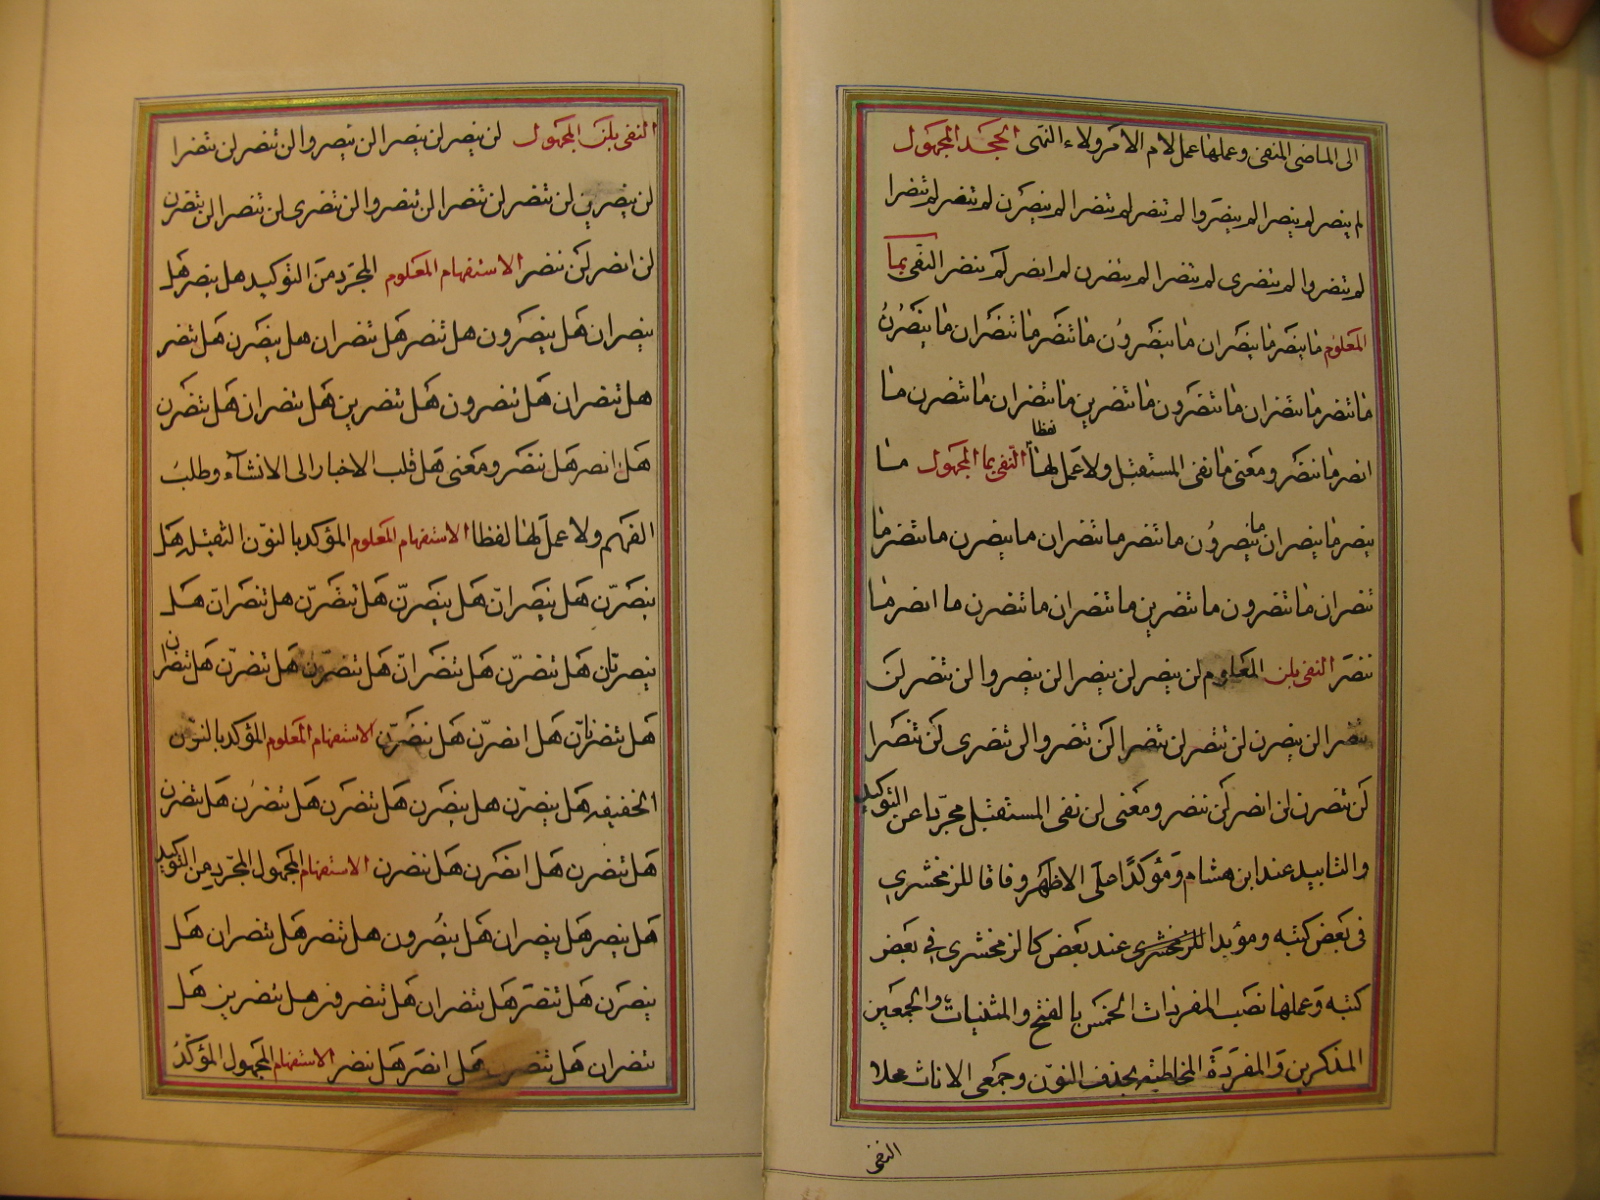 الى الماضى المنفى وعملها عمل لام الامر ولاء النهى الجحد المجهول
لم ينصر لم ينصرا لم ينصروا لم تنصر لم تنصرا لم ينصرن لم تنصر لم تنصرا
لم تنصروا لم تنصرى لم تنصرا لم تنصرن لم انصر لم ننصر النفى بما
المعلوم ما ينصر ما ينصران ما ينصرون ما تنصر ما تنصران ما ينصرن
ما تنصر ما تنصران ما تنصرون ما تنصرين ما تنصران ما تنصرن ما
انصر ما ننصر ومعنى ما نفى المستقبل ولا عمل لها لفظا النفى بما المجهول ما
ينصر ما ينصران ما ينصرون ما تنصر ما تنصران ما ينصرن ما تنصر ما
تنصران ما تنصرون ما تنصرين ما تنصران ما تنصرن ما انصر ما
ننصر النفى بلن المعلوم لن ينصر لن ينصرا لن ينصروا لن تنصر لن
تنصرا لن ينصرن لن تنصر لن تنصرا لن تنصروا لن تنصرى لن تنصرا
لن تنصرن لن انصر لن ننصر ومعنى لن نفى المستقبل مجردا عن التوكيد
والتابيد عند ابن هشام ومؤكدا على الاظهر وفاقا للزمخشري
فى بعض كتبه ومؤبدا للزمخشرى عند بعض كالزمخشري في بعض
كتبه وعملها نصب المفردات الخمس بالفتح والمثنيات والجمعين
المذكرين والمفردة المخاطبة بحذف النون وجمعى الاناث محلا
النفى
النفى بلن المجهول لن ينصر لن ينصرا لن ينصروا لن تنصر لن تنصرا
لن ينصرن لن تنصر لن تنصرا لن تنصروا لن تنصرى لن تنصرا لن تنصرن
لن انصر لن ننصر الاستفهام المعلوم المجرد من التوكيد هل ينصر هل
ينصران هل ينصرون هل تنصر هل تنصران هل ينصرن هل تنصر
هل تنصران هل تنصرون هل تنصرين هل تنصران هل تنصرن
هل انصر هل ننصر ومعنى هل قلب الاخبار الى الانشاء وطلب
الفهم ولا عمل لها لفظا الاستفهام المعلوم المؤكد بالنون الثقيلة هل
ينصرن هل ينصران هل ينصرن هل تنصرن هل تنصران هل
ينصرنان هل تنصرن هل تنصران هل تنصرن هل تنصرن هل تنصران
هل تنصرنان هل انصرن هل ننصرن الاستفهام المعلوم المؤكد بالنون
الخفيفة هل ينصرن هل ينصرن هل تنصرن هل تنصرن هل تنصرن
هل تنصرن هل انصرن هل ننصرن الاستفهام المجهول المجرد من التوكيد
هل ينصر هل ينصران هل ينصرون هل تنصر هل تنصران هل
ينصرن هل تنصر هل تنصران هل تنصرون هل تنصرين هل
تنصران هل تنصرن هل انصر هل ننصر الاستفهام المجهول المؤكد